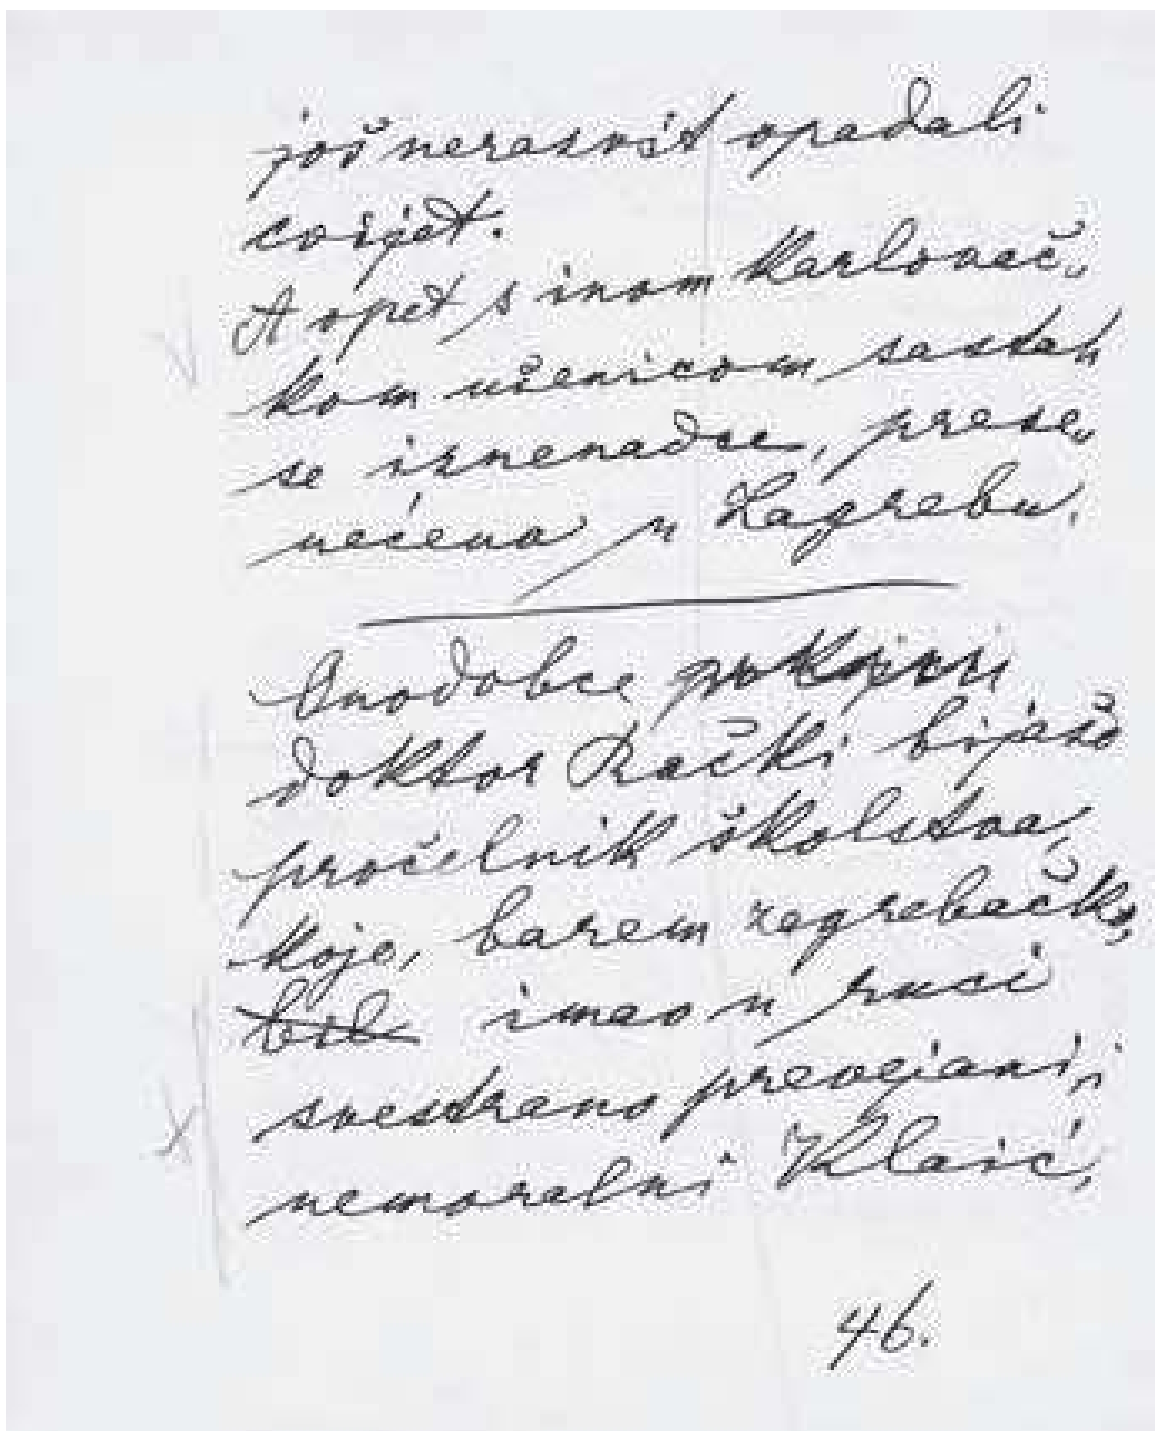 još nerasvit opadali
cvijet.
A opet s inom Karlovač„
kom učenicom sastah
se iznenadce, prese„
uećena u Zagrebu.
Onodobce pokojni
doktor Rački bijaše
pročelnik školstva,
koje, barem zagrebačko,
bilo imao u ruci
svestrano prevejani,
nemoralni Klaić,
46.